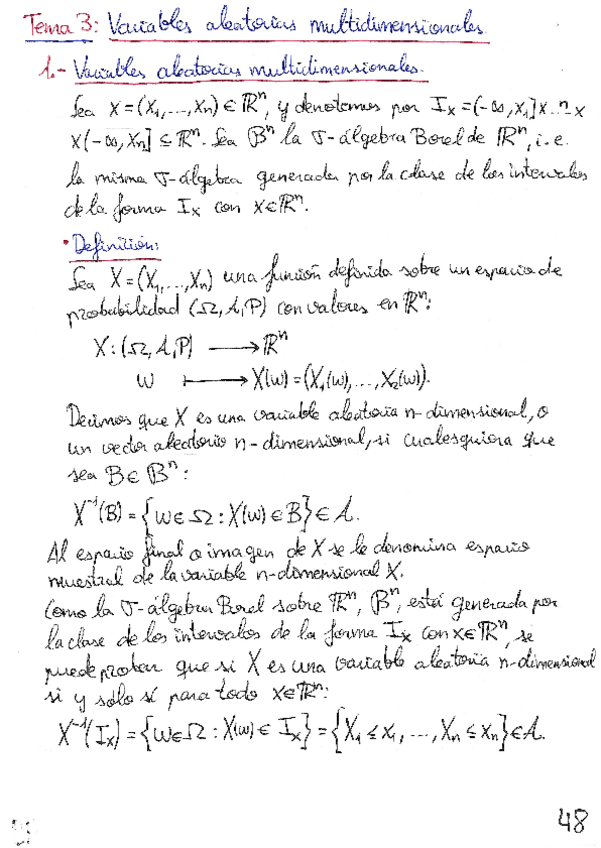 Tema 3: Variables aleatorias multidimensionales.
1.- Variables aleatorias multidimensionales.
Sea x=(x₁,...,xₙ)∈ℝⁿ, y denotamos por Iₓ=(-∞,x₁]x..ⁿ..x
x(-∞,xₙ]⊆ℝⁿ. Sea 𝔹ⁿ la σ-álgebra Borel de ℝⁿ, i.e.
la misma σ-álgebra generada por la clase de los intervalos
de la forma Iₓ con x∈ℝⁿ.
• Definición:
Sea X=(X₁,...,Xₙ) una función definida sobre un espacio de
probabilidad (Ω,A,P) con valores en ℝⁿ:
X:(Ω,A,P) ⟶ ℝⁿ
w ⟼ X(w)=(X₁(w),...,X₂(w)).
Decimos que X es una variable aleatoria n-dimensional, o
un vector aleatorio n-dimensional, si cualesquiera que
sea B∈𝔹ⁿ:
X⁻¹(B)={w∈Ω:X(w)∈B}∈A.
Al espacio final o imagen de X se le denomina espacio
muestral de la variable n-dimensional X.
Como la σ-álgebra Borel sobre ℝⁿ, 𝔹ⁿ, está generada por
la clase de los intervalos de la forma Iₓ con x∈ℝⁿ, se
puede probar que si X es una variable aleatoria n-dimensional
si y sólo sí para todo x∈ℝⁿ:
X⁻¹(Iₓ)={w∈Ω:X(w)∈Iₓ}={X₁≤x₁,...,Xₙ≤xₙ}∈A.
48